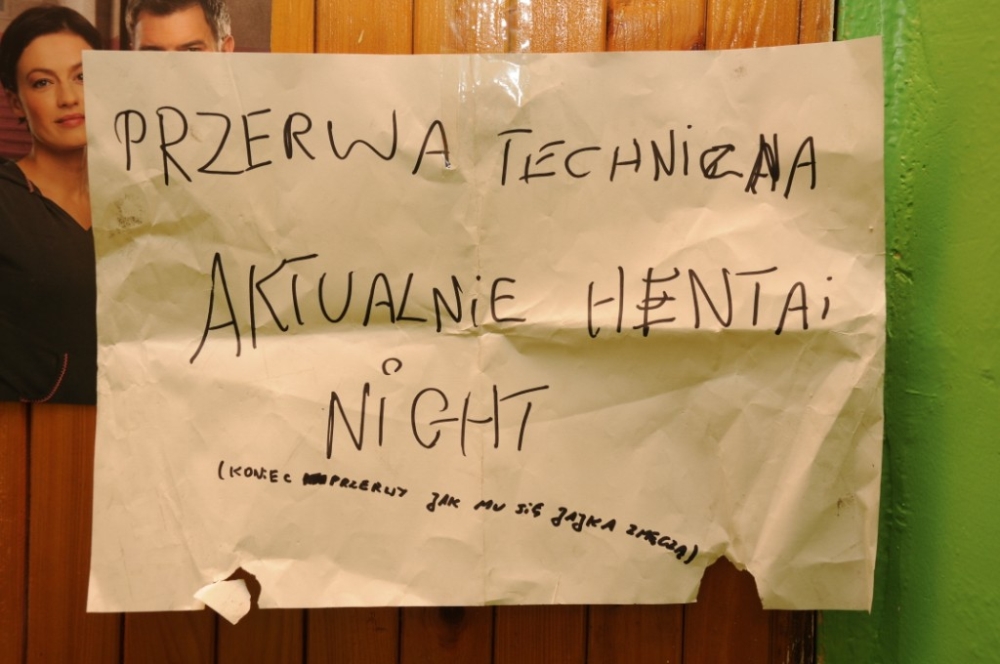 PRZERWA TECHNICZNA
AKTUALNIE HENTAi
NiGHT
(KONIEC PRZERWY JAK MU SIĘ JAJKA ZMĘCZĄ)